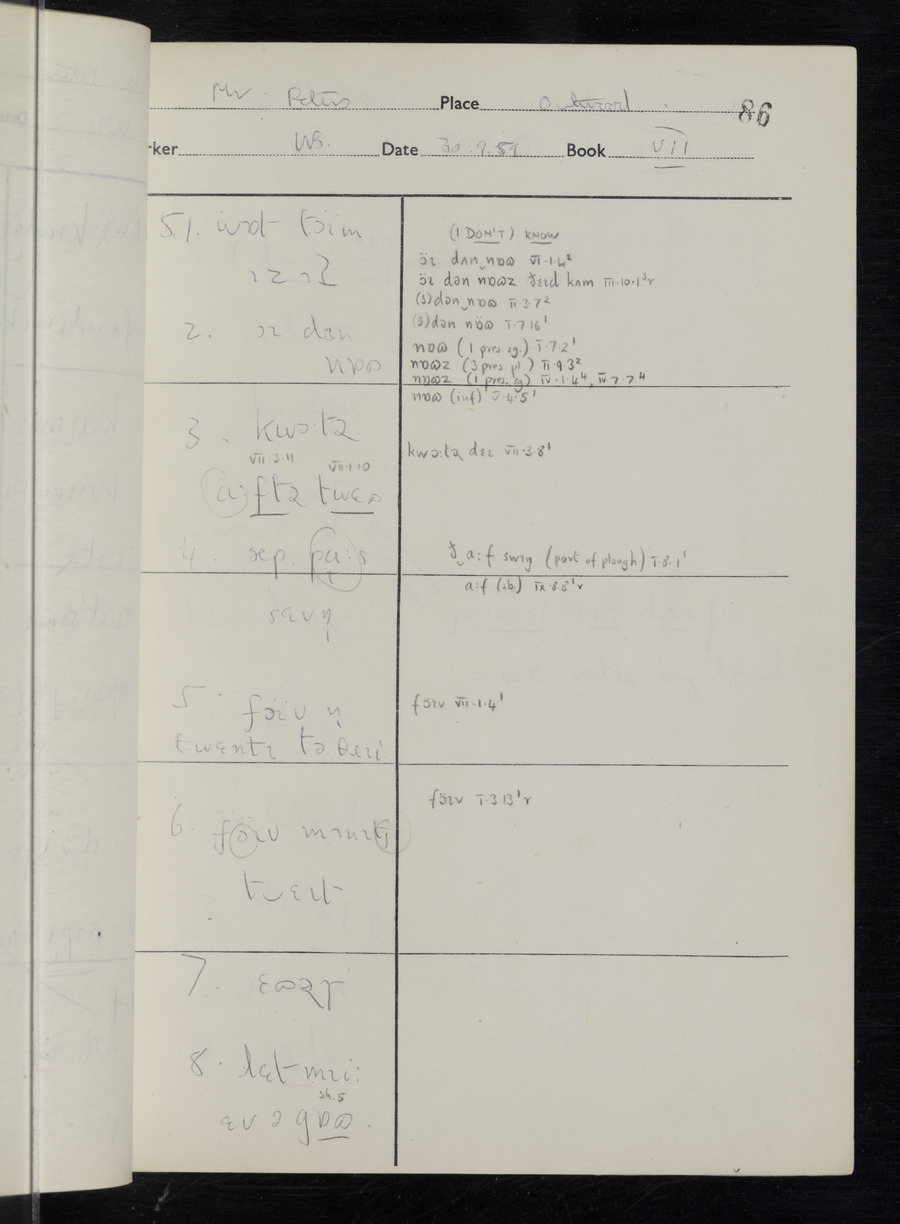 Mr Peters Place Outwood 86
ker WS. Date 30.9.59 Book VII
5.1. wɒt tɔim
ɪz ɪt
2. ɔɪ dən
nɒɷ
(I DON'T) KNOW
ɔ̈ɪ dʌn‿nɒɷ VI.1.4²
ɔ̈ɪ dən nɒɷz ðɛɪd kʌm III.10.1³r
(ɔ̈)dən‿nɒɷ II.3.7²
(ɔ̈)dən nɔ̈ɷ I.7.16¹
nɒɷ (1 pres. sg.) I.7.2¹
nɒɷz (3 pres. pl.) II.9.3²
nɒɷz (1 pres. sg) IV.1.4⁴, IV.7.7⁴
nɒɷ (inf) V.4.5¹
3. kwɔ:tə
VII.3.11 VII.1.10
a:ftə twɛɷ
kwɔ:tə dɛɪ VII.3.8¹
4. sep. pa:s
sɛvn̩
ð‿a:f swɪŋ (part of plough) I.8.1¹
a:f (sb.) IX.8.8¹r
5. fɔɪv n̩
twɛntɪ tə θɹɪi
fɔ̈ɪv VII.1.4¹
6. fɔ̈ɪv mɪnɪts
twɛɪt
fɔ̈ɪv I.3.13¹r
7. ɛɷəɪ
8. lɛt mɪi:
sh.5
ɛv ə gɒɷ.